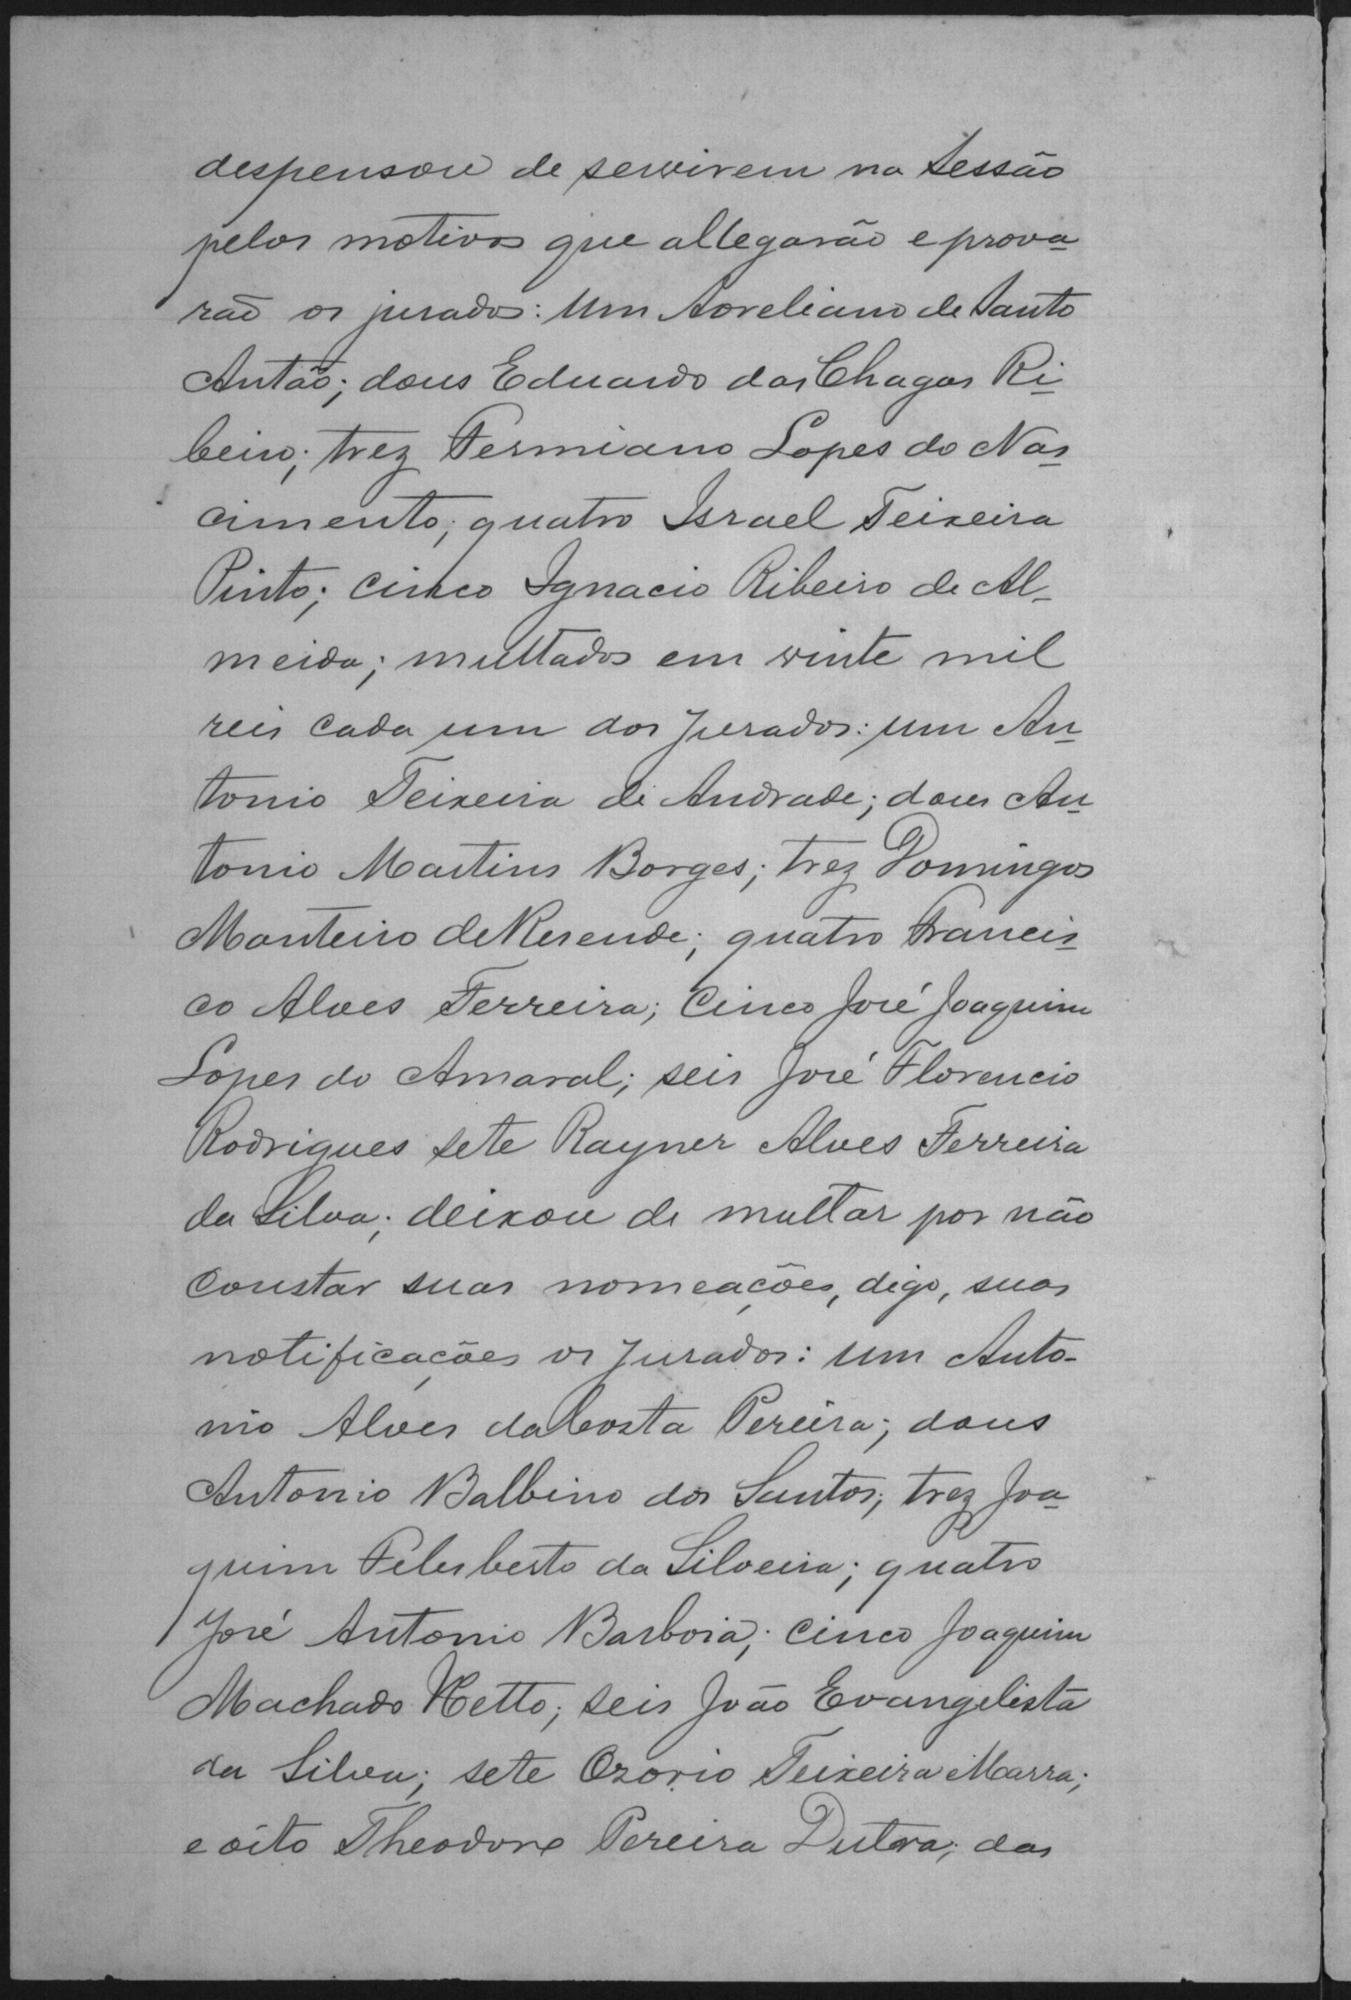 despensou de servirem na Sessão
pelos motivos que allegarão e prova-
rão os jurados: Um Aoreliano de Santo
Antão; dous Eduardo das Chagas Ri-
beiro; trez Fermiano Lopes do Nas-
cimento; quatro Israel Teixeira
Pinto; cinco Ignacio Ribeiro de Al-
meida; multados em vinte mil
reis cada um dos Jurados: um An-
tonio Teixeira de Andrade; dous An-
tonio Martins Borges; trez Domingos
Monteiro de Resende; quatro Francis-
co Alves Ferreira; Cinco José Joaquim
Lopes do Amaral; seis José Florencio
Rodrigues sete Rayner Alves Ferreira
da Silva; deixou de multar por não
Constar suas nomeações, digo, suas
notificações os Jurados: um Anto-
nio Alves da Costa Pereira; dous
Antonio Balbino dos Santos; trez Joa-
quim Feleberto da Silveira; quatro
José Antonio Barbosa; cinco Joaquim
Machado Netto; seis João Evangelista
da Silva; sete Ozorio Teixeira Marra;
e oito Theodoro Pereira Dutra; das